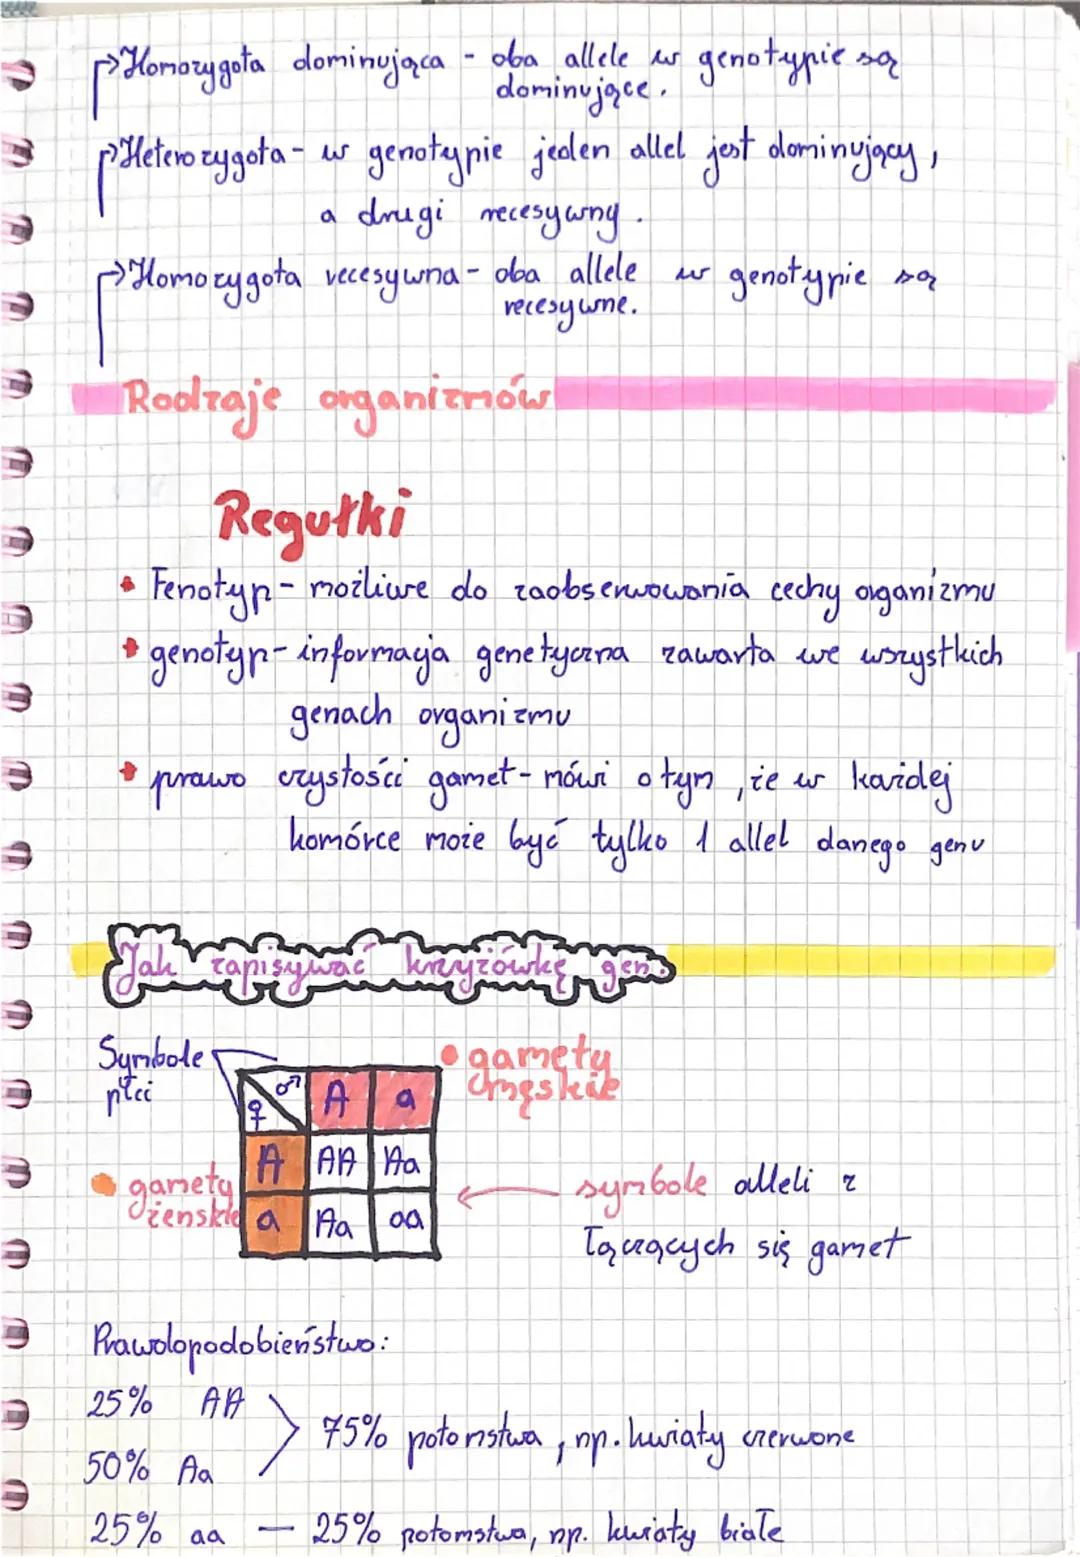 Homozygota dominująca - oba allele w genotypie są
dominujące.
Heterozygota - w genotypie jeden allel jest dominujący,
a drugi recesywny.
Homozygota recesywna - oba allele w genotypie są
recesywne.
Rodzaje organizmów
Regułki
• Fenotyp - możliwe do zaobserwowania cechy organizmu
• genotyp - informacja genetyczna zawarta we wszystkich
genach organizmu
• prawo czystości gamet - mówi o tym, że w każdej
komórce może być tylko 1 allel danego genu
Jak zapisywać krzyżówkę gen.
Symbole
płci
• gamety
męskie
♀ ♂ A a
A AA Aa
a Aa aa
• gamety
żeńskie
symbole alleli z
łączących się gamet
Prawdopodobieństwo:
25% AA
50% Aa
75% potomstwa, np. kwiaty czerwone
25% aa — 25% potomstwa, np. kwiaty białe